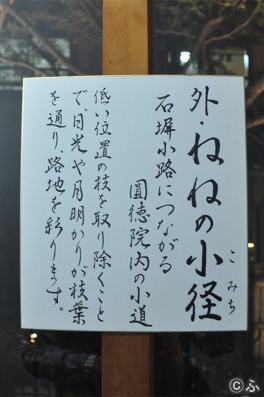 外・ねねの小径
こみち
石塀小路につながる
圓徳院内の小道
低い位置の枝を取り除くこと
で、日光や月明かりが枝葉
を通り、路地を彩ります。
©ふ